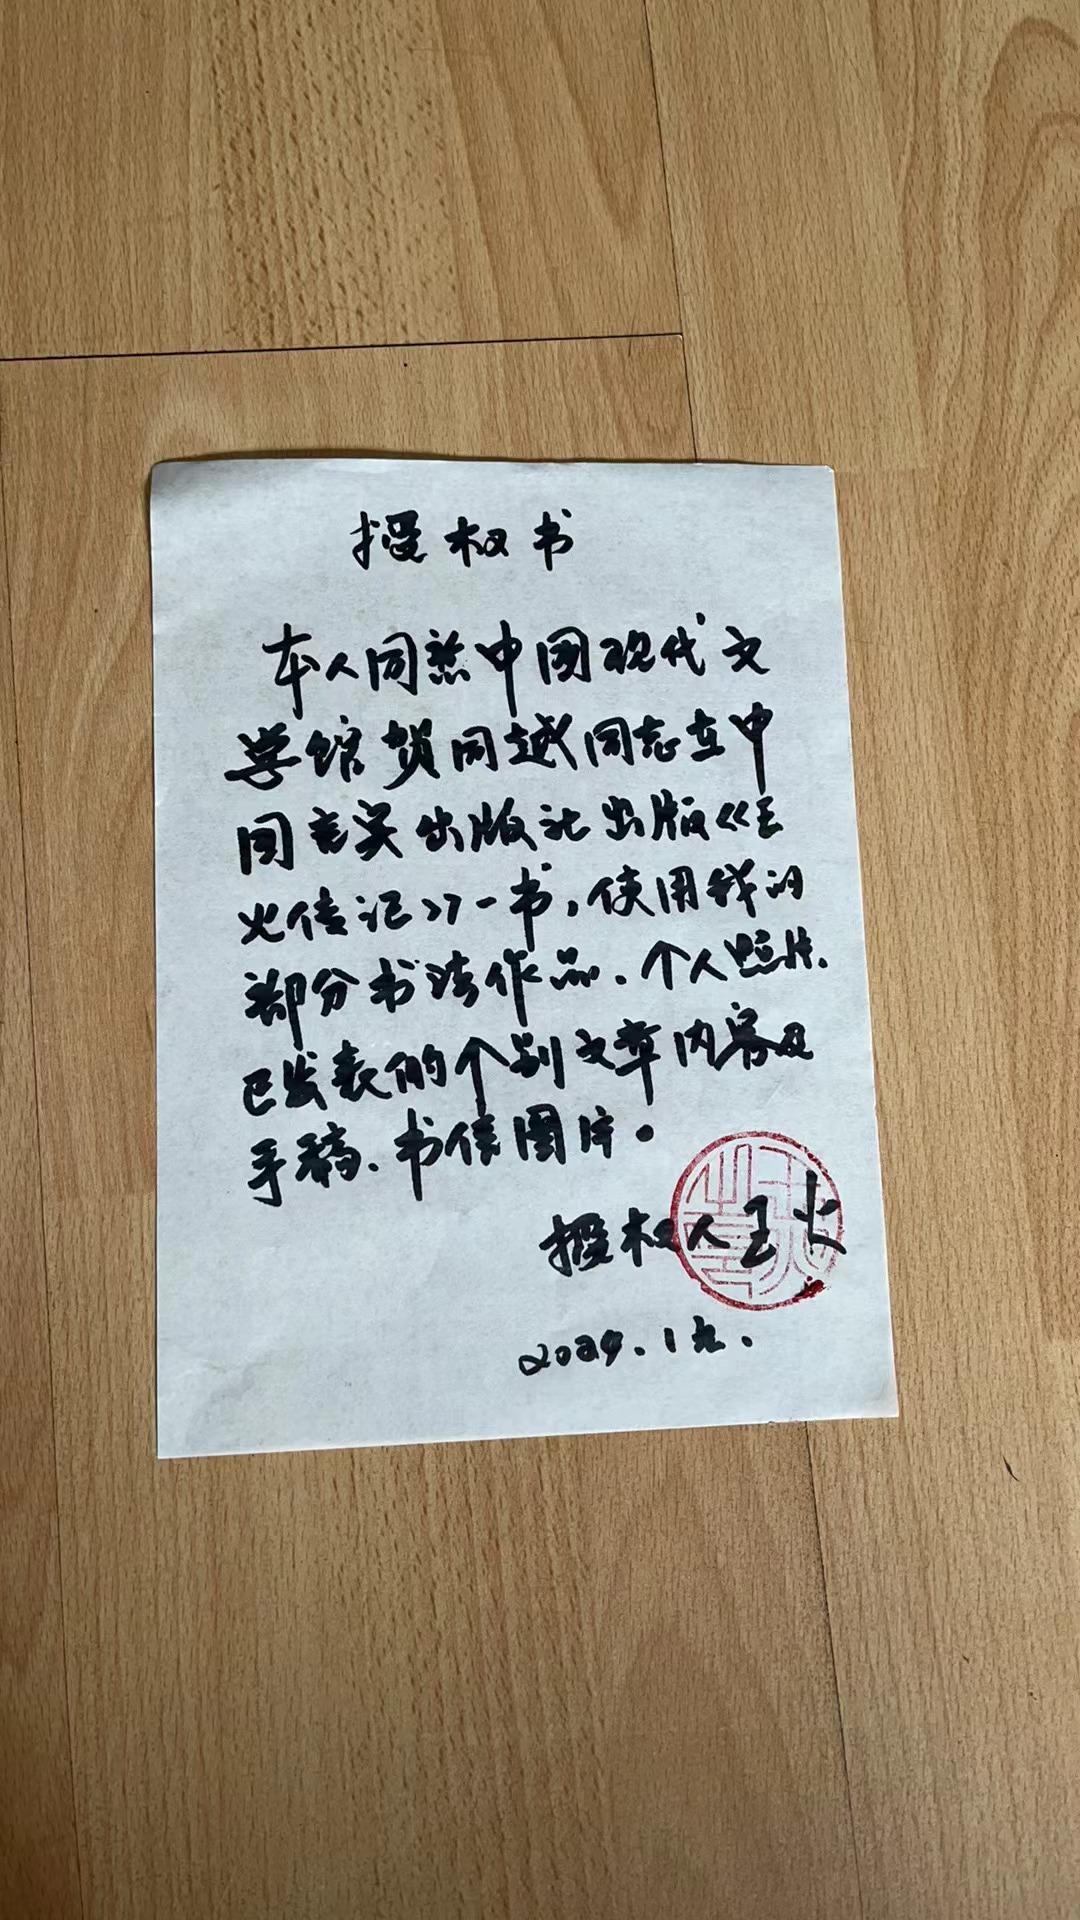 授权书
本人同意中国现代文
学馆贺同越同志在中
国言实出版社出版《王
火传记》一书，使用我的
部分书法作品、个人照片、
已发表的个别文章内容及
手稿、书信图片。
授权人王火
2024.1